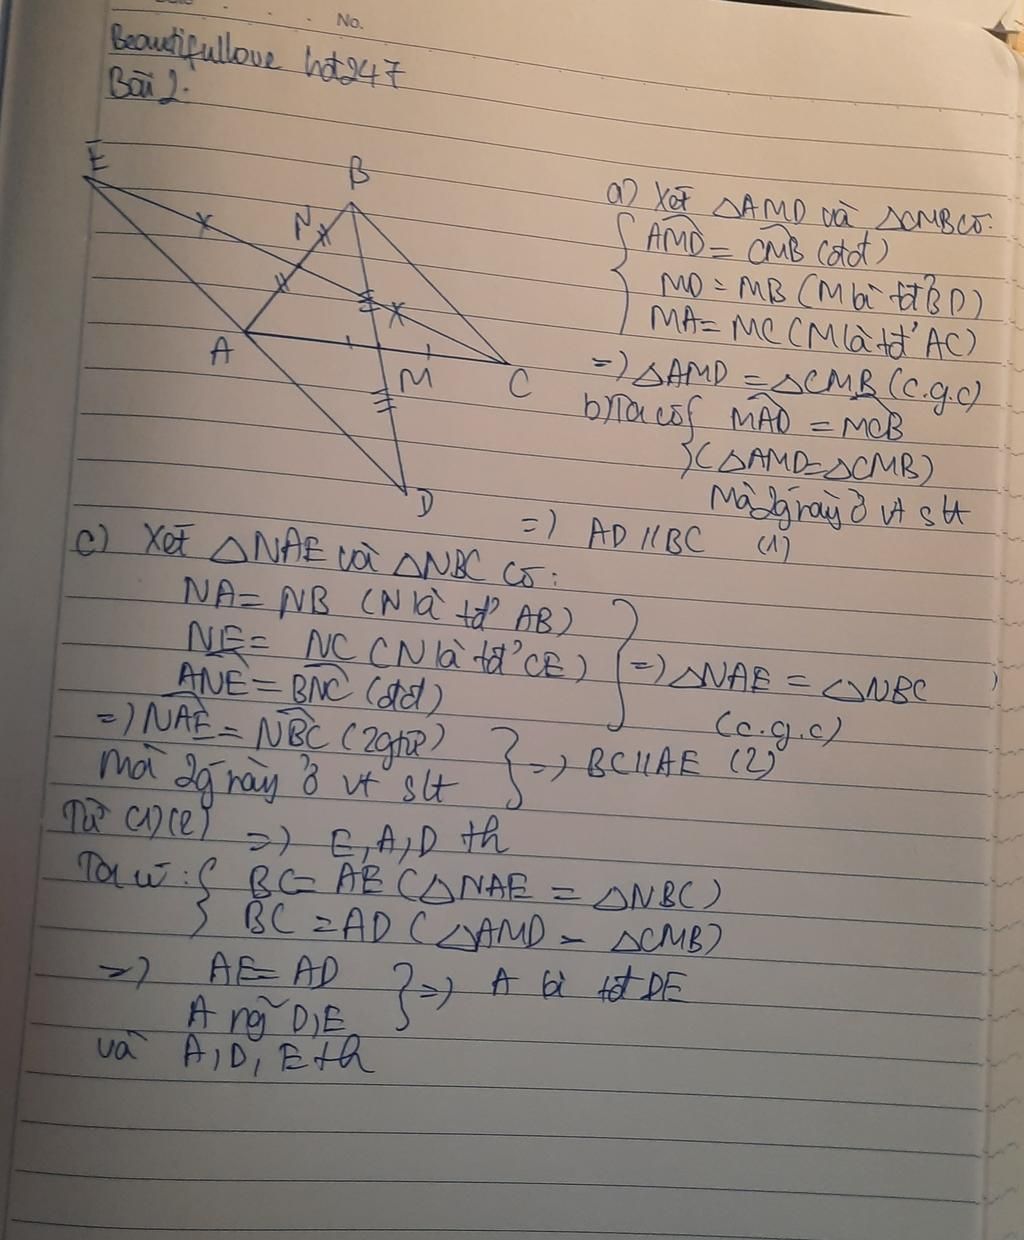 No.
Beautifullove hđ247
Bài 2.
E
B
N
A
M
C
D
a) Xét △AMD và △CMB có:
AMD = CMB (đđ)
MD = MB (M là tđ BD)
MA = MC (M là tđ AC)
=) △AMD = △CMB (c.g.c)
b) Ta có { MAD = MCB
(△AMD = △CMB)
Mà 2 góc này ở vt slt
=) AD // BC (1)
c) Xét △NAE và △NBC có:
NA = NB (N là tđ AB)
NE = NC (N là tđ CE)
ANE = BNC (đđ)
=) △NAE = △NBC
(c.g.c)
=) NAE = NBC (2gtứ)
Mà 2g này ở vt slt
=) BC // AE (2)
Từ (1)(2) =) E, A, D th
Ta có: { BC = AE (△NAE = △NBC)
BC = AD (△AMD = △CMB)
=) AE = AD
A ng~ D, E
=) A là tđ DE
và A, D, E th